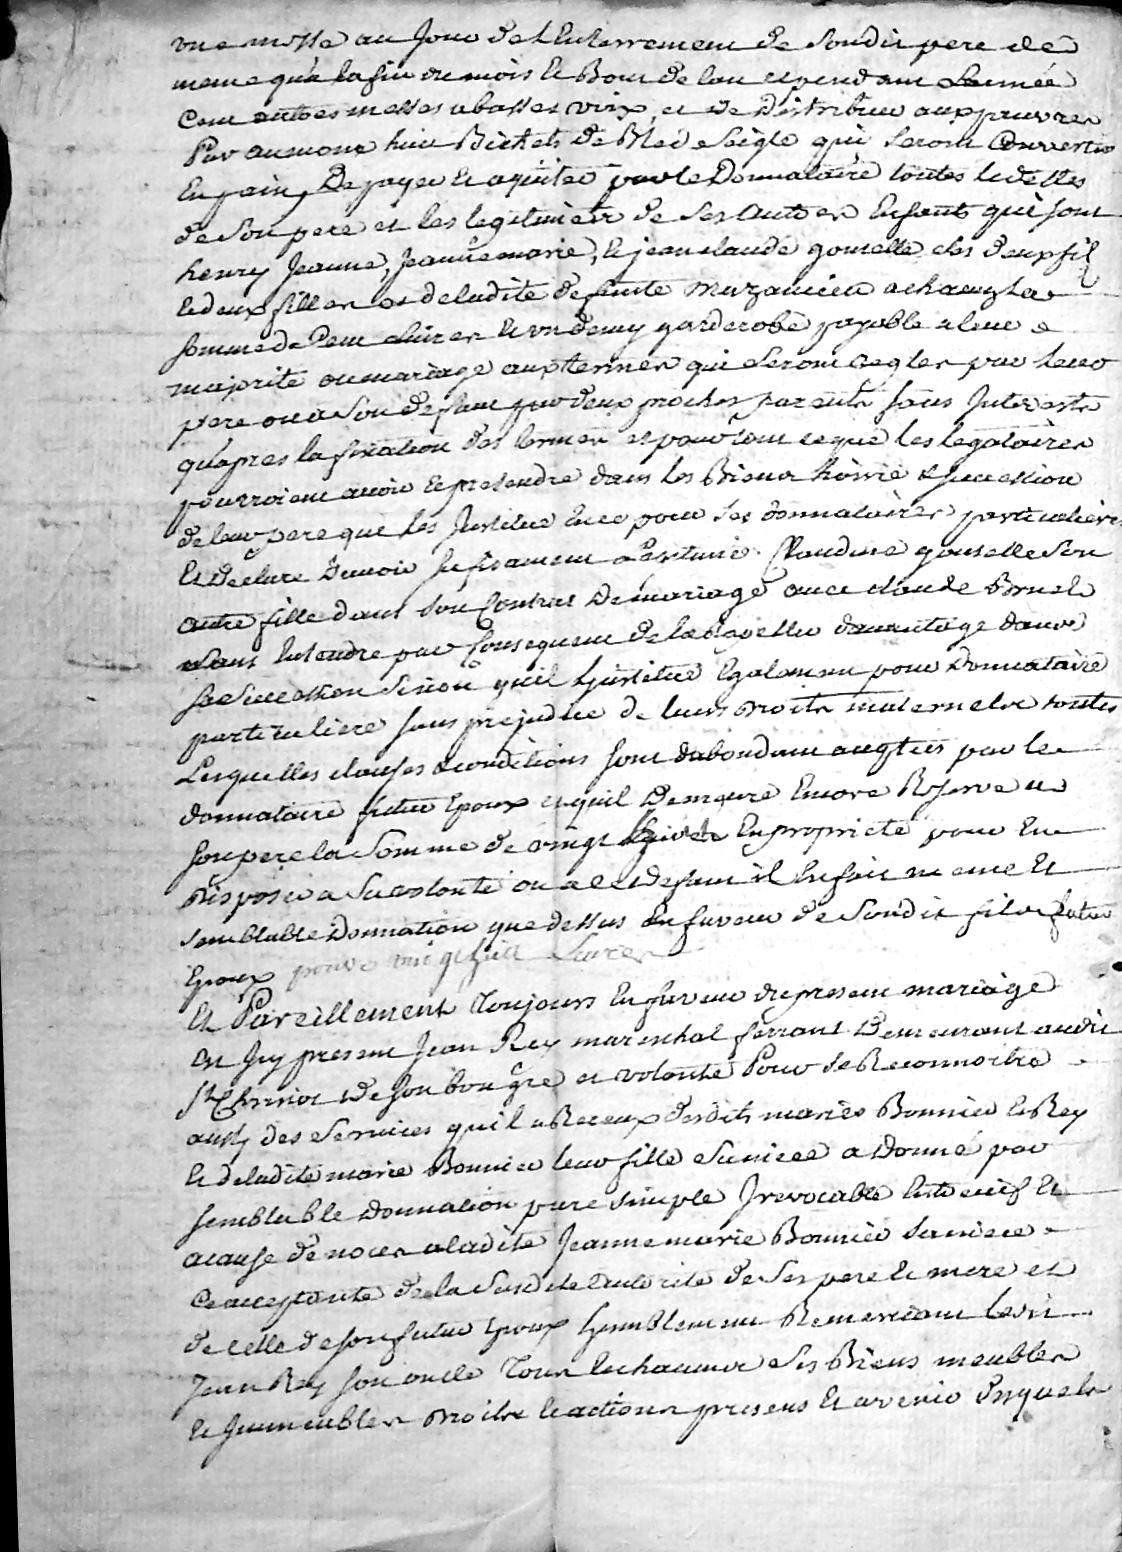 une messe au Jour de L'Enterrement de Sondit pere de
meme qu'a la fin du mois et Bout de lan et pendant Lannée
Cent autres messes a basses voix, et de distribuer aux pauvres
Par aumone huit Bichets de Bled Seigle qui Seront Convertis
En pain, De payer et aquiter par le Donnataire toutes le dettes
de Son pere et les legitimer de Ses autres Enfants qui sont
henry Jeanne, Jeanne marie, et jean claude gouttelle ses deux fils
et deux filles et de ladite defunte a chacun la
somme de Cent Livres et un demy garderobe payable a leur
majorité ou mariage aux termes qui Seront regles par leur
pere ou a Son defaut par deux proches parents sans Interests
qu'apres la fixation des termes et pour tout ce que les legataires
pourroient avoir et pretendre dans les Biens hoirie et Succession
de leur pere que les Institue En ce pour Ses donnataires particuliers
Et Declare Davoir Sufisament Claudine goutelle Son
autre fille dans Son Contrat De mariage avec claude Bruel
Sans Entendre par Consequent de la Rapeller davantage dans
Sa Succession Sinon quil Linstitue Egalement pour Donnataire
particuliere sans prejudice de leurs Droits maternels toutes
Lesquelles clauses et conditions sont dabondant par le
donnataire futur Epoux et quil Demeure Encore Reservé au
Son pere la Somme de vingt Livres En propriete pour En
Disposer a Sa volonté ou a ce defaut il En fait meme Et
semblable Donnation que dessus En faveur de Sondit fils futur
Epoux pour Livres
Et Pareillement Toujours En faveur du present mariage
Est Icy present Jean Rey marechal ferrant Demeurant audit
St De son bon gré et volonté Pour Se Reconnoitre
aussy des Services quil a Receux desdits mariés Bonnier et Rey
Et de ladite marie Bonnier leur fille Sa niece a Donné par
semblable Donnation pure Simple Irevocable Entre vif Et
a cause de noces a ladite Jeanne marie Bonnier Sa niece
Ce acceptante de la Susdite autorité de Ses pere et mere et
de celle de son futur Epoux humblement Remerciant ledit
Jean Rey son oncle Tous Ses Biens meubles
Et Immeubles Droits et actions presens Et avenir Desquels